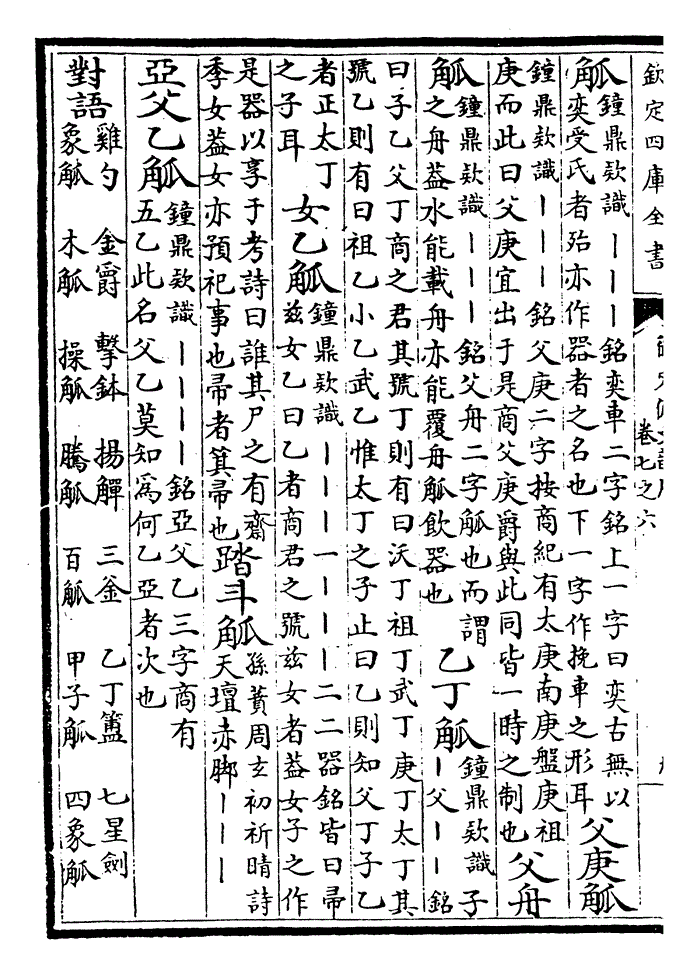 欽定四庫全書
卷七之六
觚
鐘鼎欵識｜｜｜銘奕車二字銘上一字曰奕古無以
奕受氏者殆亦作器者之名也下一字作挽車之形耳
父庚觚
鐘鼎欵識｜｜｜銘父庚二字按商紀有太庚南庚盤庚祖
庚而此曰父庚宜出于是商父庚爵與此同皆一時之制也
父舟
觚
鐘鼎欵識｜｜｜銘父舟二字觚也而謂
之舟葢水能載舟亦能覆舟觚飲器也
乙丁觚
鐘鼎欵識子
｜父｜｜銘
曰子乙父丁商之君其號丁則有曰沃丁祖丁武丁庚丁太丁其
號乙則有曰祖乙小乙武乙惟太丁之子止曰乙則知父丁子乙
者正太丁
之子耳
女乙觚
鐘鼎欵識｜｜｜一｜｜｜二二器銘皆曰帚
兹女乙曰乙者商君之號兹女者葢女子之作
是器以享于考詩曰誰其尸之有齋
季女葢女亦預祀事也帚者箕帚也
踏斗觚
孫蕡周玄初祈晴詩
天壇赤脚｜｜｜
亞父乙觚
鐘鼎欵識｜｜｜｜銘亞父乙三字商有
五乙此名父乙莫知為何乙亞者次也
對語
雞勺 金爵 擊鉢 揚觶 三釜 乙丁簠 七星劍
象觚 木觚 操觚 騰觚 百觚 甲子觚 四象觚